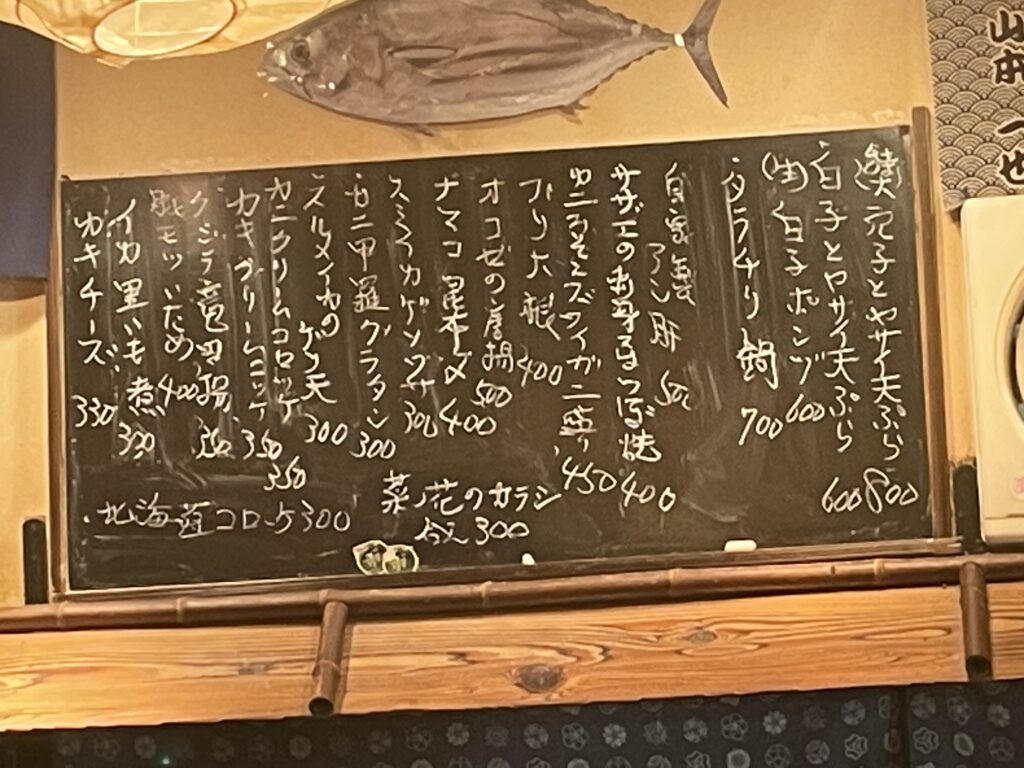 穴子とヤサイ天ぷら 800
白子とヤサイ天ぷら 600
(生)白子ポンヅ 600
タラチリ鍋 700
自家製
アン肝 500
サザエのお刺身 つぼ焼 400
ズワイガニ盛り 450
ブリ大根 400
オコゼの唐揚 500
ナマコ 昆布〆 400
スミイカゲソワサ 300
カニ甲羅グラタン 300
スルメイカの
ゲソ天 300
カニクリームコロッケ 350
カキクリームコロッケ 350
クジラ竜田揚 350
豚モツいため 400
イカ里いも煮 300
カキチーズ 330
菜ノ花のカラシ
合え 300
北海道コロッケ 300